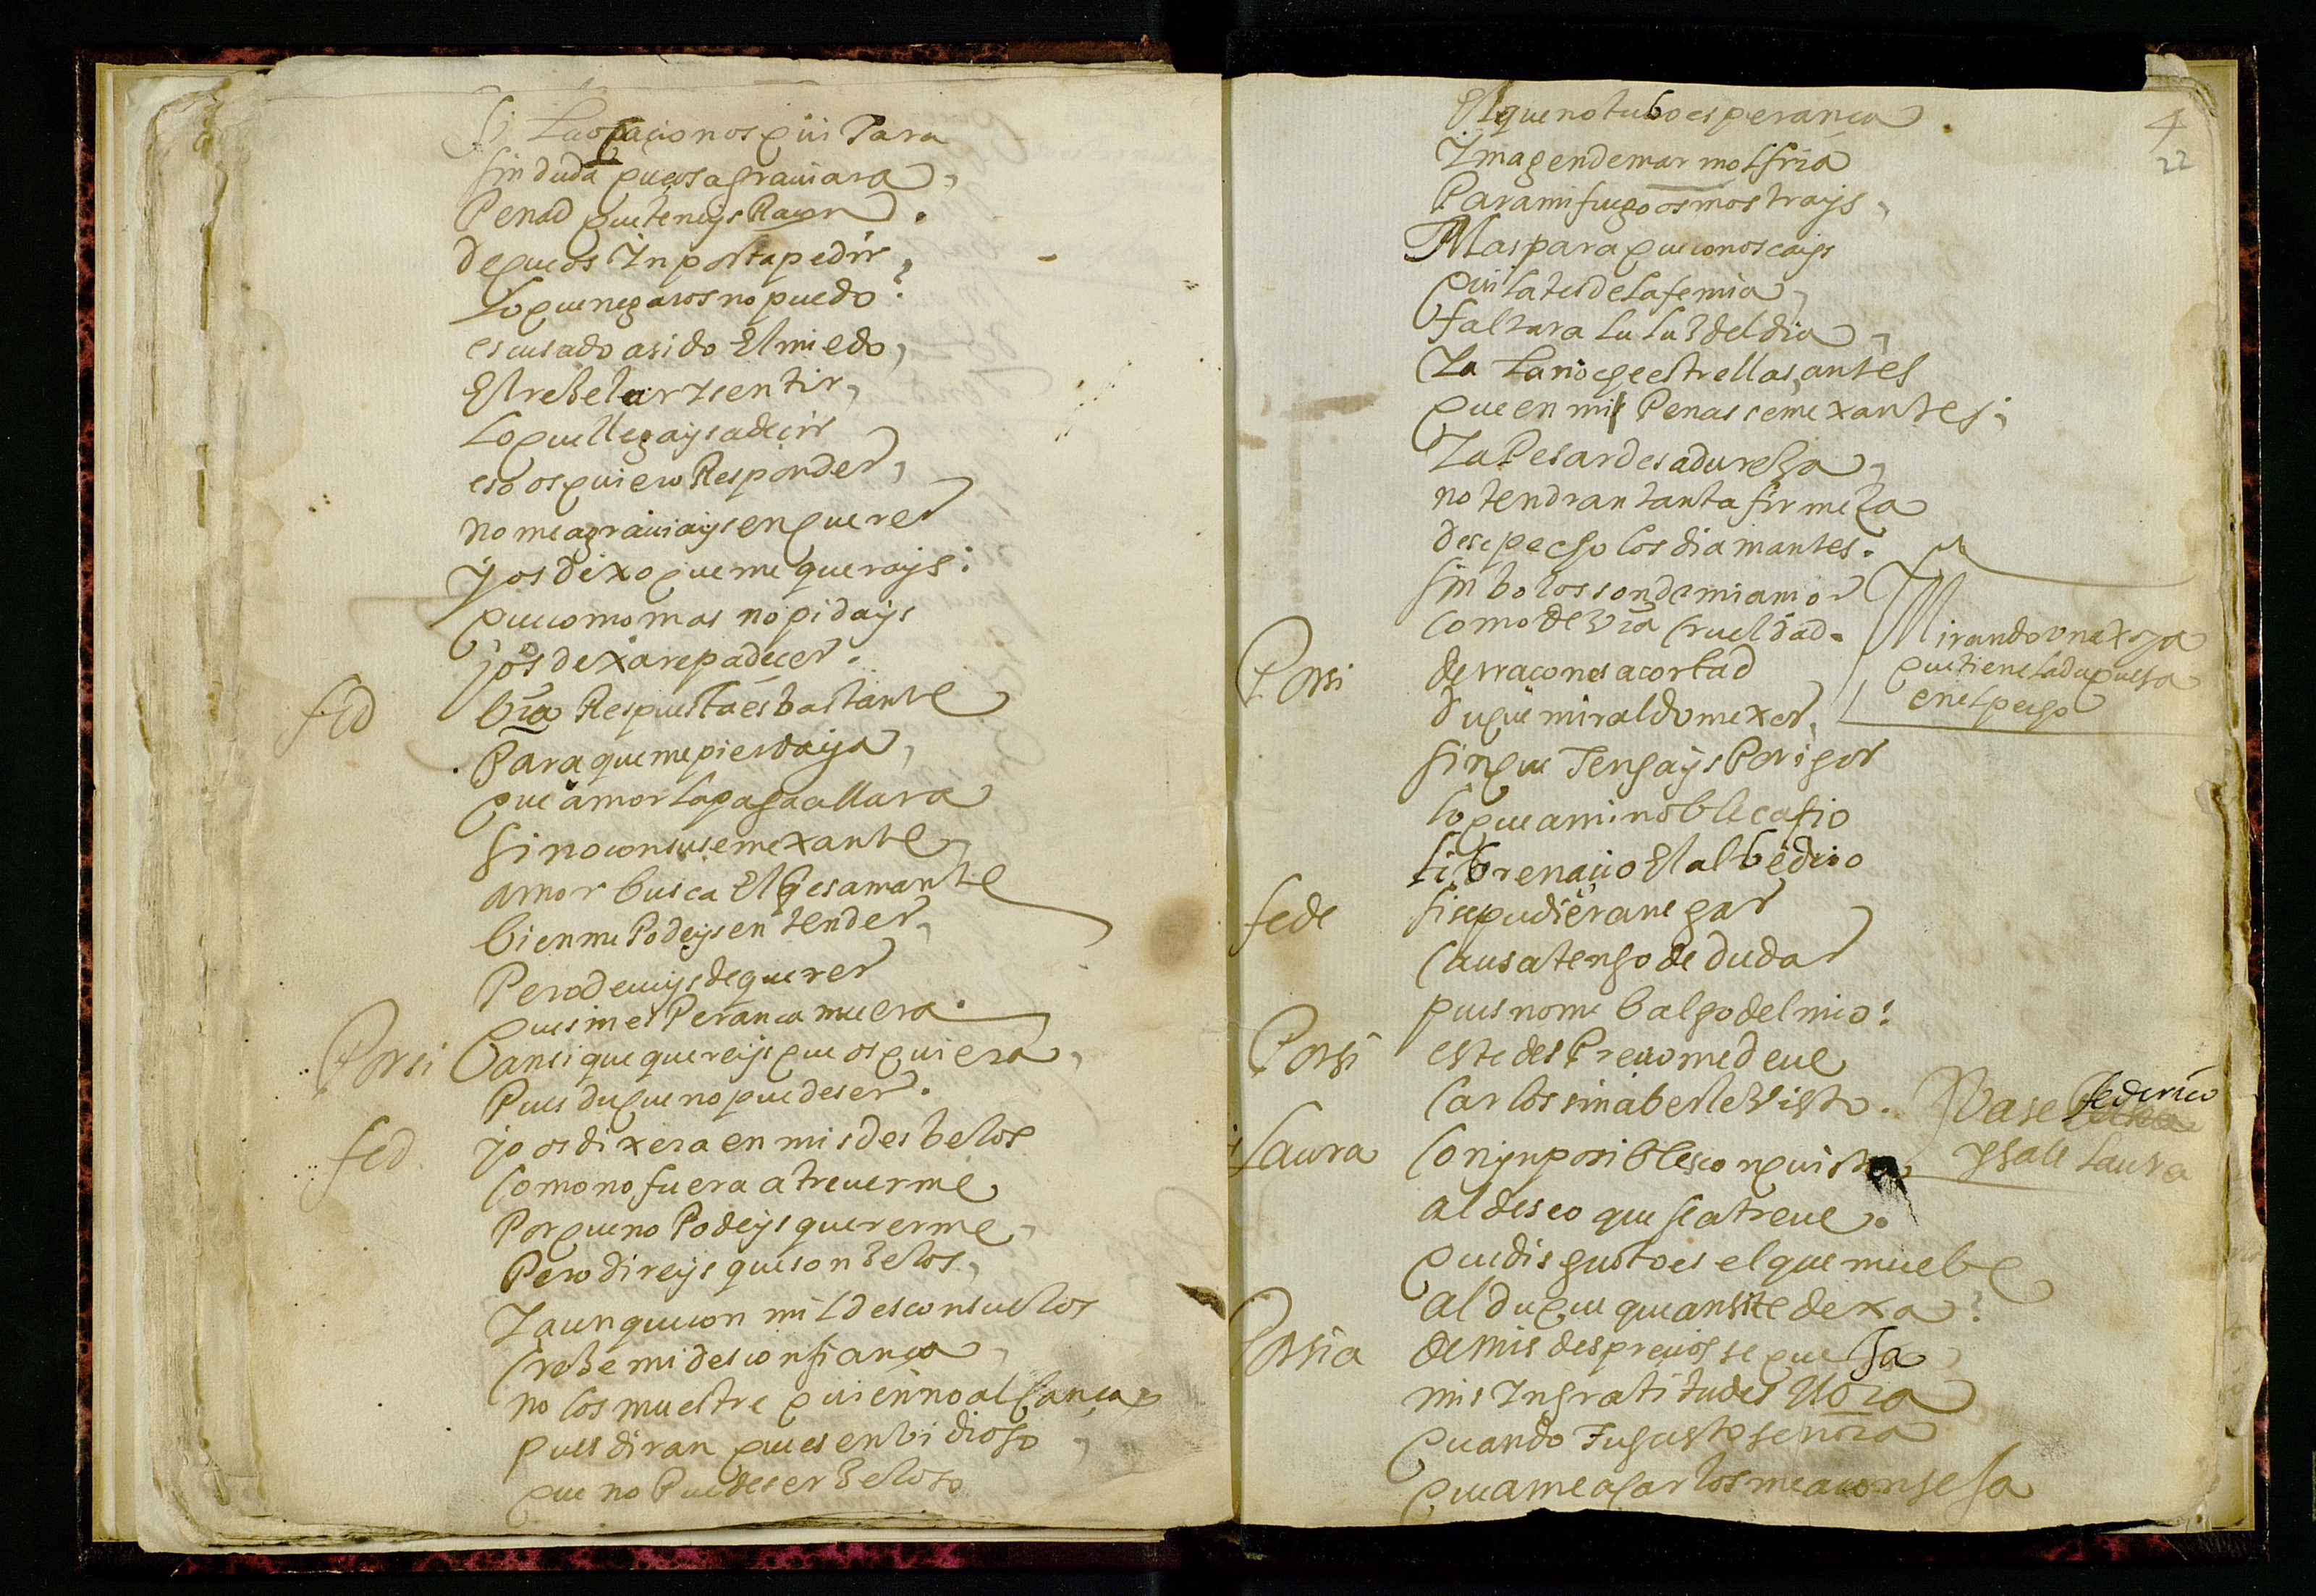 si la ocacion os quitara
sin duda que os agrauiara,
Penad que teneys Raçon.
de que os Inporta pedir,
lo que negaros no puedo?
escusado a sido El miedo,
El rebelar y sentir,
lo que llegays a deçir
eso os quiero Responder,
no me agrauiays en querer
y os dexo que me querays:
que como mas no pidays
yo os dexare padecer.
fed bra Respuesta es bastante
Para que me pierda ya,
que amor la paga allara
sino con su semexante
amor busca El q es amante
bien me Podeys entender,
Pero deueys de querer
que sin esperança muera.
Porsi ansi que quereys que os quiera,
Pues duque no puede ser.
fed. yo os dixera en mis desbelos
como no fuera atreuerme
Porque no Podeys quererme,
Pero direys que son zelos,
Y aunque con mil desconsuelos
creze mi desconfiança,
no los muestre quien no alcança
pues diran que es enbidioso,
que no Puede ser zeloso
4
22
El que no tubo esperança.
Imagen de marmol fria
Para mi fuego os mostrays,
Mas para que conoscays
quilates de la fe mia,
faltara la luz del dia,
Y a la noche estrellas, antes
que en mis Penas semexantes;
Y a Pesar de sa dureza,
no tendran tanta firmeza
dese pecho los diamantes.
sinbolos son de mi amor
como de vra crueldad.
Mirando una xoya
que tiene la duquesa
en el pecho
Porsi de rraçones acortad
duque miraldo mexor,
sin que Tengays Por rigor
lo que a mi noble casio
libre naçio El albedrio
fede si se pudiera negar
causa tengo de dudar
pues no me balgo del mio!
Porsi este desPrecio me deue
Carlos sin aberle visto.
Vase federico
y sale Laura
Laura con ynposibles conquista
al deseo que se atreue.
que disgusto es el que muebe
al duque que ansi te dexa?
Porsia de mis despreçios se quexa
mis Ingratitudes llora
quando Tu gusto señora
que ame a Carlos me aconsexa